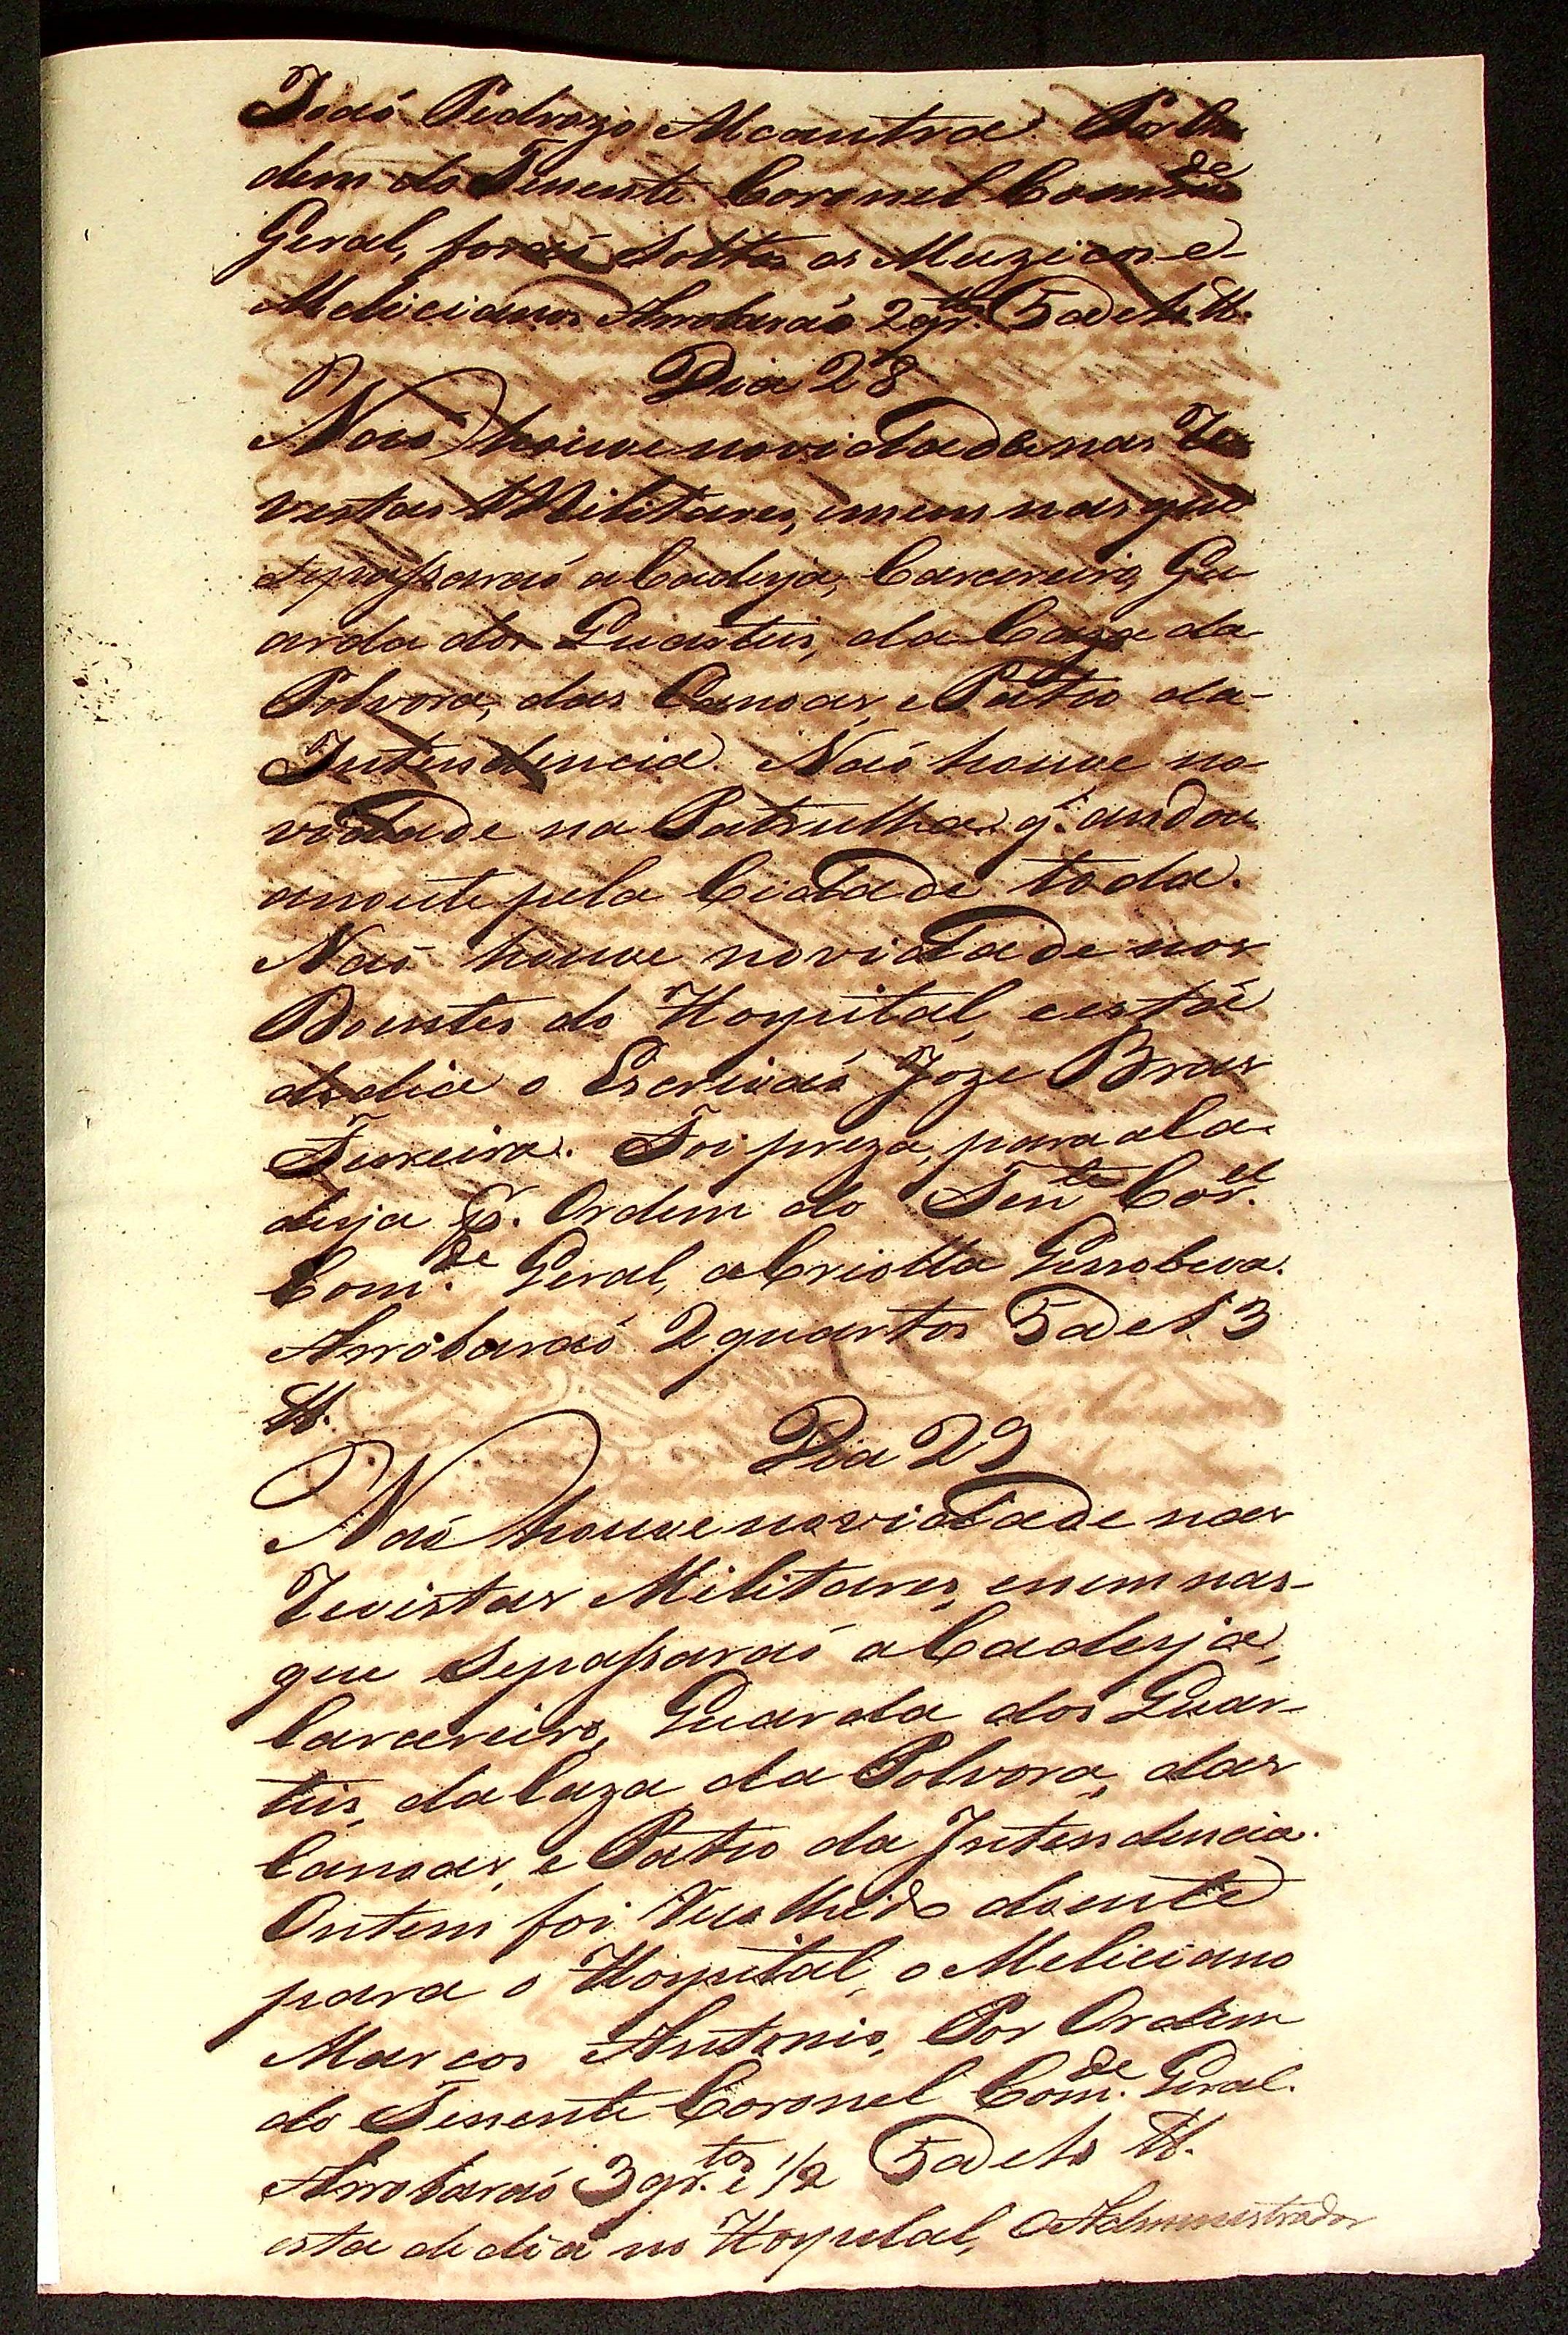 João Pedrozo Alcantra. Por Or
dem do Tenente Coronel Com.de
Geral, forão soltos os Muzicos e
Melicianos Arrobarão 2 qr.tos 5 @ e
Dia 28
Não houve novidade nas Re
vistas Militares, e nem nas que
se passarão a Cadeya, Carcereiro, Gu
arda dos Quarteis, da Caza da
Polvora, das Canoas, e Patio da
Intendencia. Não houve no
vidade na Patrulha q. andou
a noite pela Cidade toda.
Não houve novidade nos
Doentes do Hospital, e está
de dia o Escrivão Joze Bras
Teixeira. Foi preza, para a Ca
deya P. Ordem do Ten.te Cor.el
Com.de Geral, a Criolla Genobeva.
Arrobarão 2 quartos 5 @ e 3
lb.
Dia 29
Não houve novidade nas
Revistas Militares, e nem nas
que se passarão a Cadeya,
Carcereiro, Guarda dos Quar
teis, da Caza da Polvora, das
Canoas, e Patio da Intendencia.
Ontem foi Recolhido doente
para o Hospital, o Meliciano
Marcos Antonio, Por Ordem
do Tenente Coronel Com.de Geral.
Arrobarão 3 qr.tos e 1/2 5 @ e lb.
esta de dia no Hospital, O Administrador